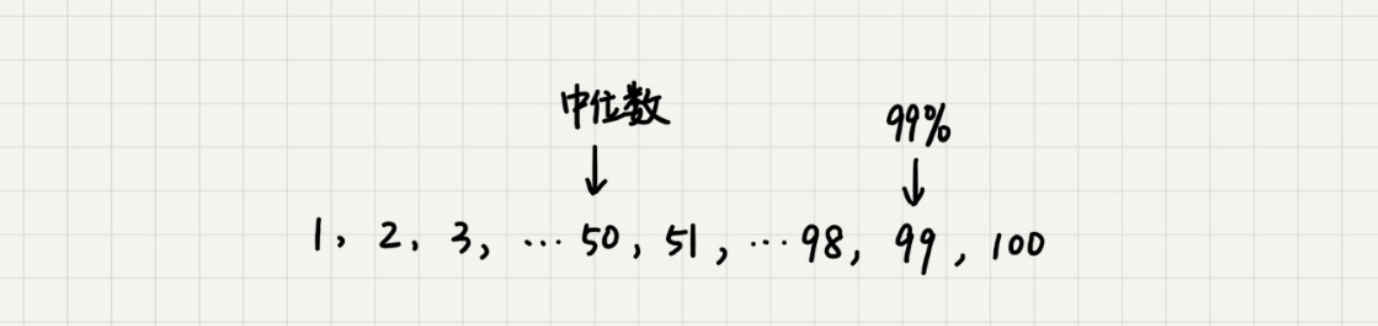 中位数 99%
↓ ↓
1, 2, 3, … 50, 51, … 98, 99, 100